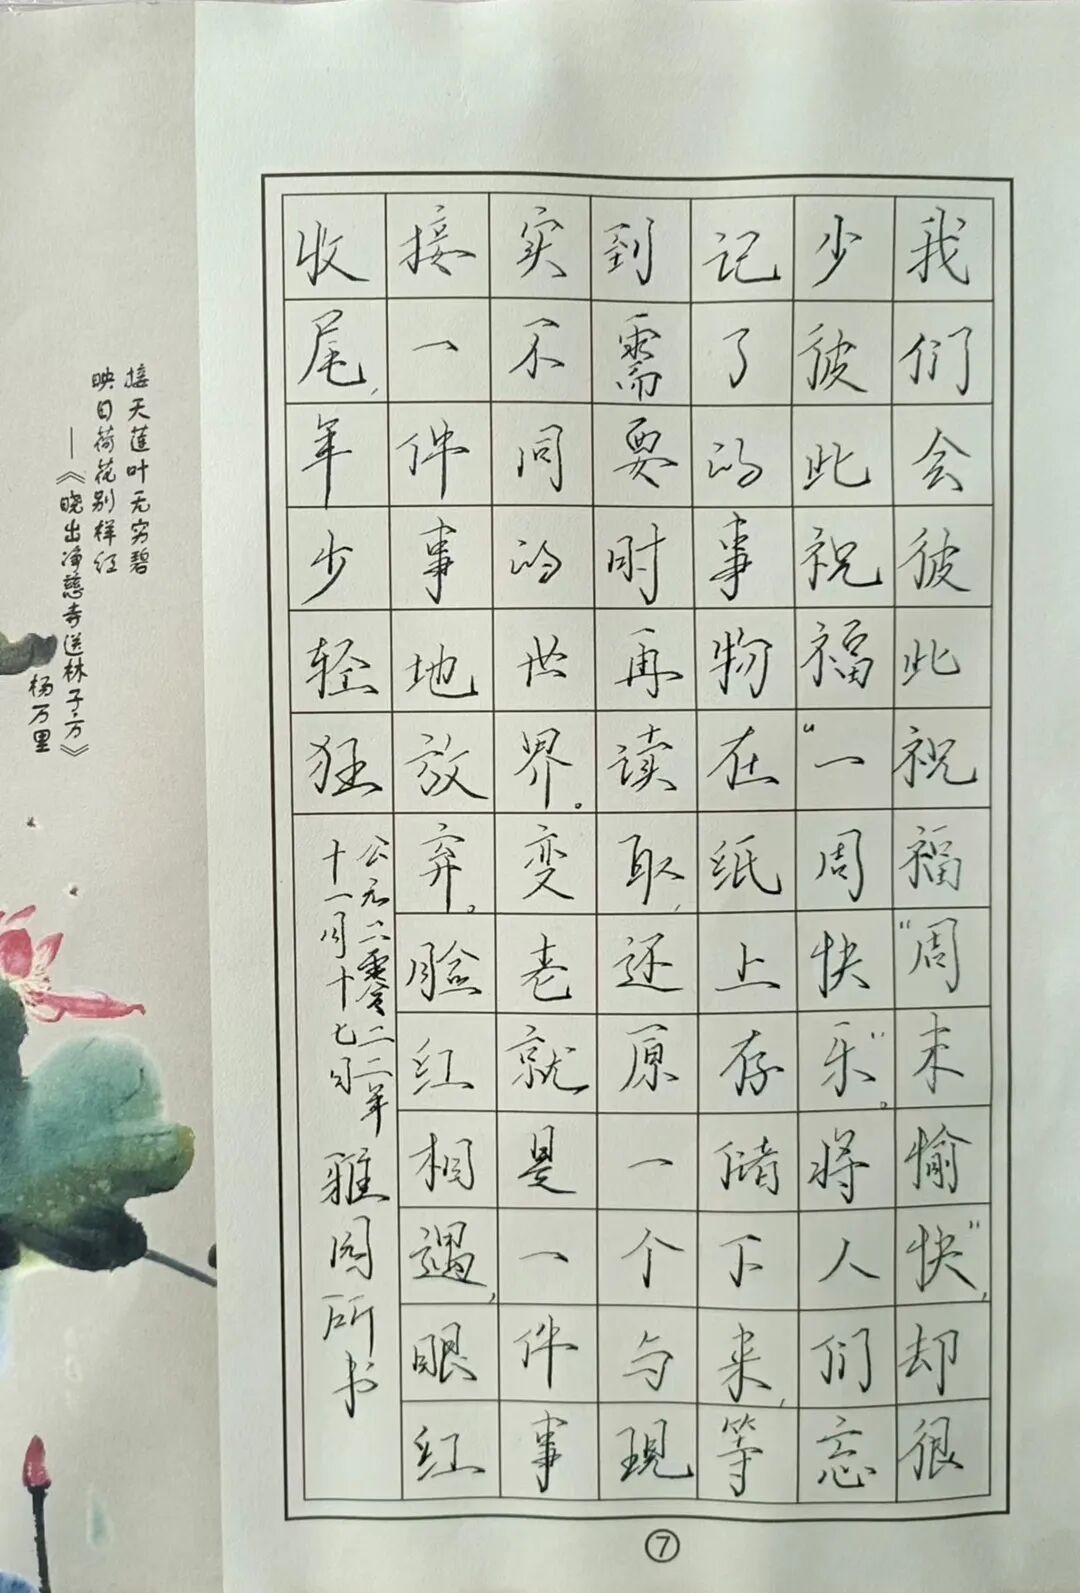 我们会彼此祝福“周末愉快”,却很
少彼此祝福“一周快乐”。将人们忘
记了的事物在纸上存储下来,等
到需要时再读取,还原一个与现
实不同的世界。变老就是一件事
接一件事地放弃。脸红相遇,眼红
收尾,年少轻狂
公元二零二二年
十一月十七日
雅阁所书
接天莲叶无穷碧
映日荷花别样红
——《晓出净慈寺送林子方》
杨万里
⑦